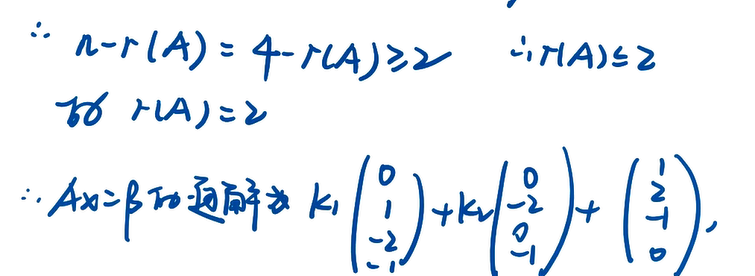 ∴ n-r(A)=4-r(A)≥2 ∴r(A)≤2
故 r(A)=2
∴Ax=β的通解为 k₁(0 1 -2 -1)+k₂(0 -2 0 -1)+(1 2 -1 0),